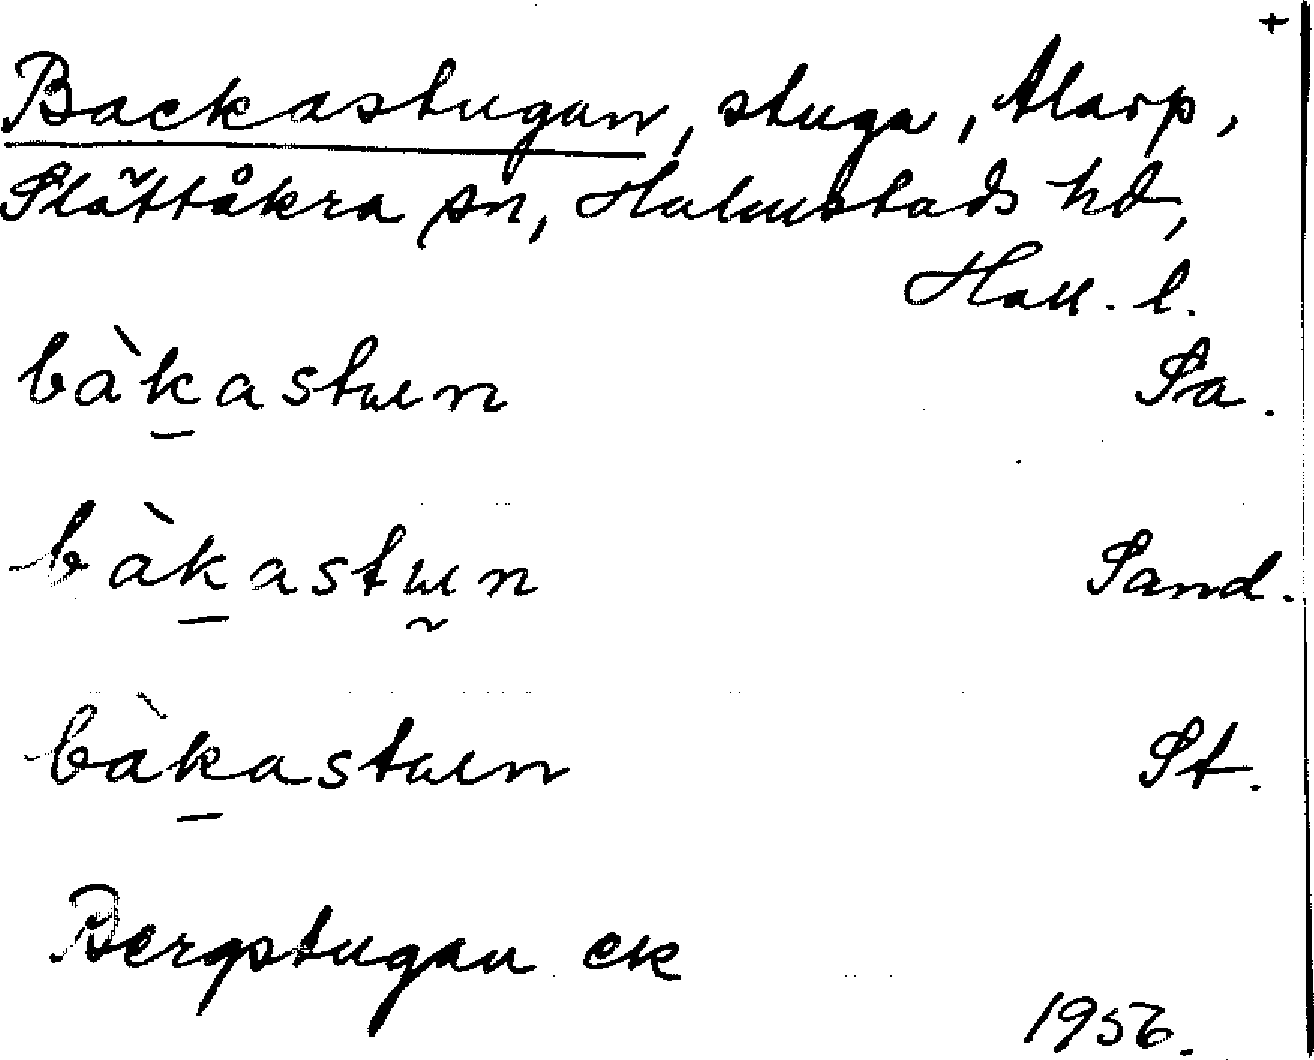 +
Backastugan, stuga, Alarp,
Slättåkra sn, Halmstads hd,
Hall. l.
bàk̲astɯn Sa.
bàk̲astɯ̰n Sand.
bàk̲astɯn St.
Bergstugan ek
1956.